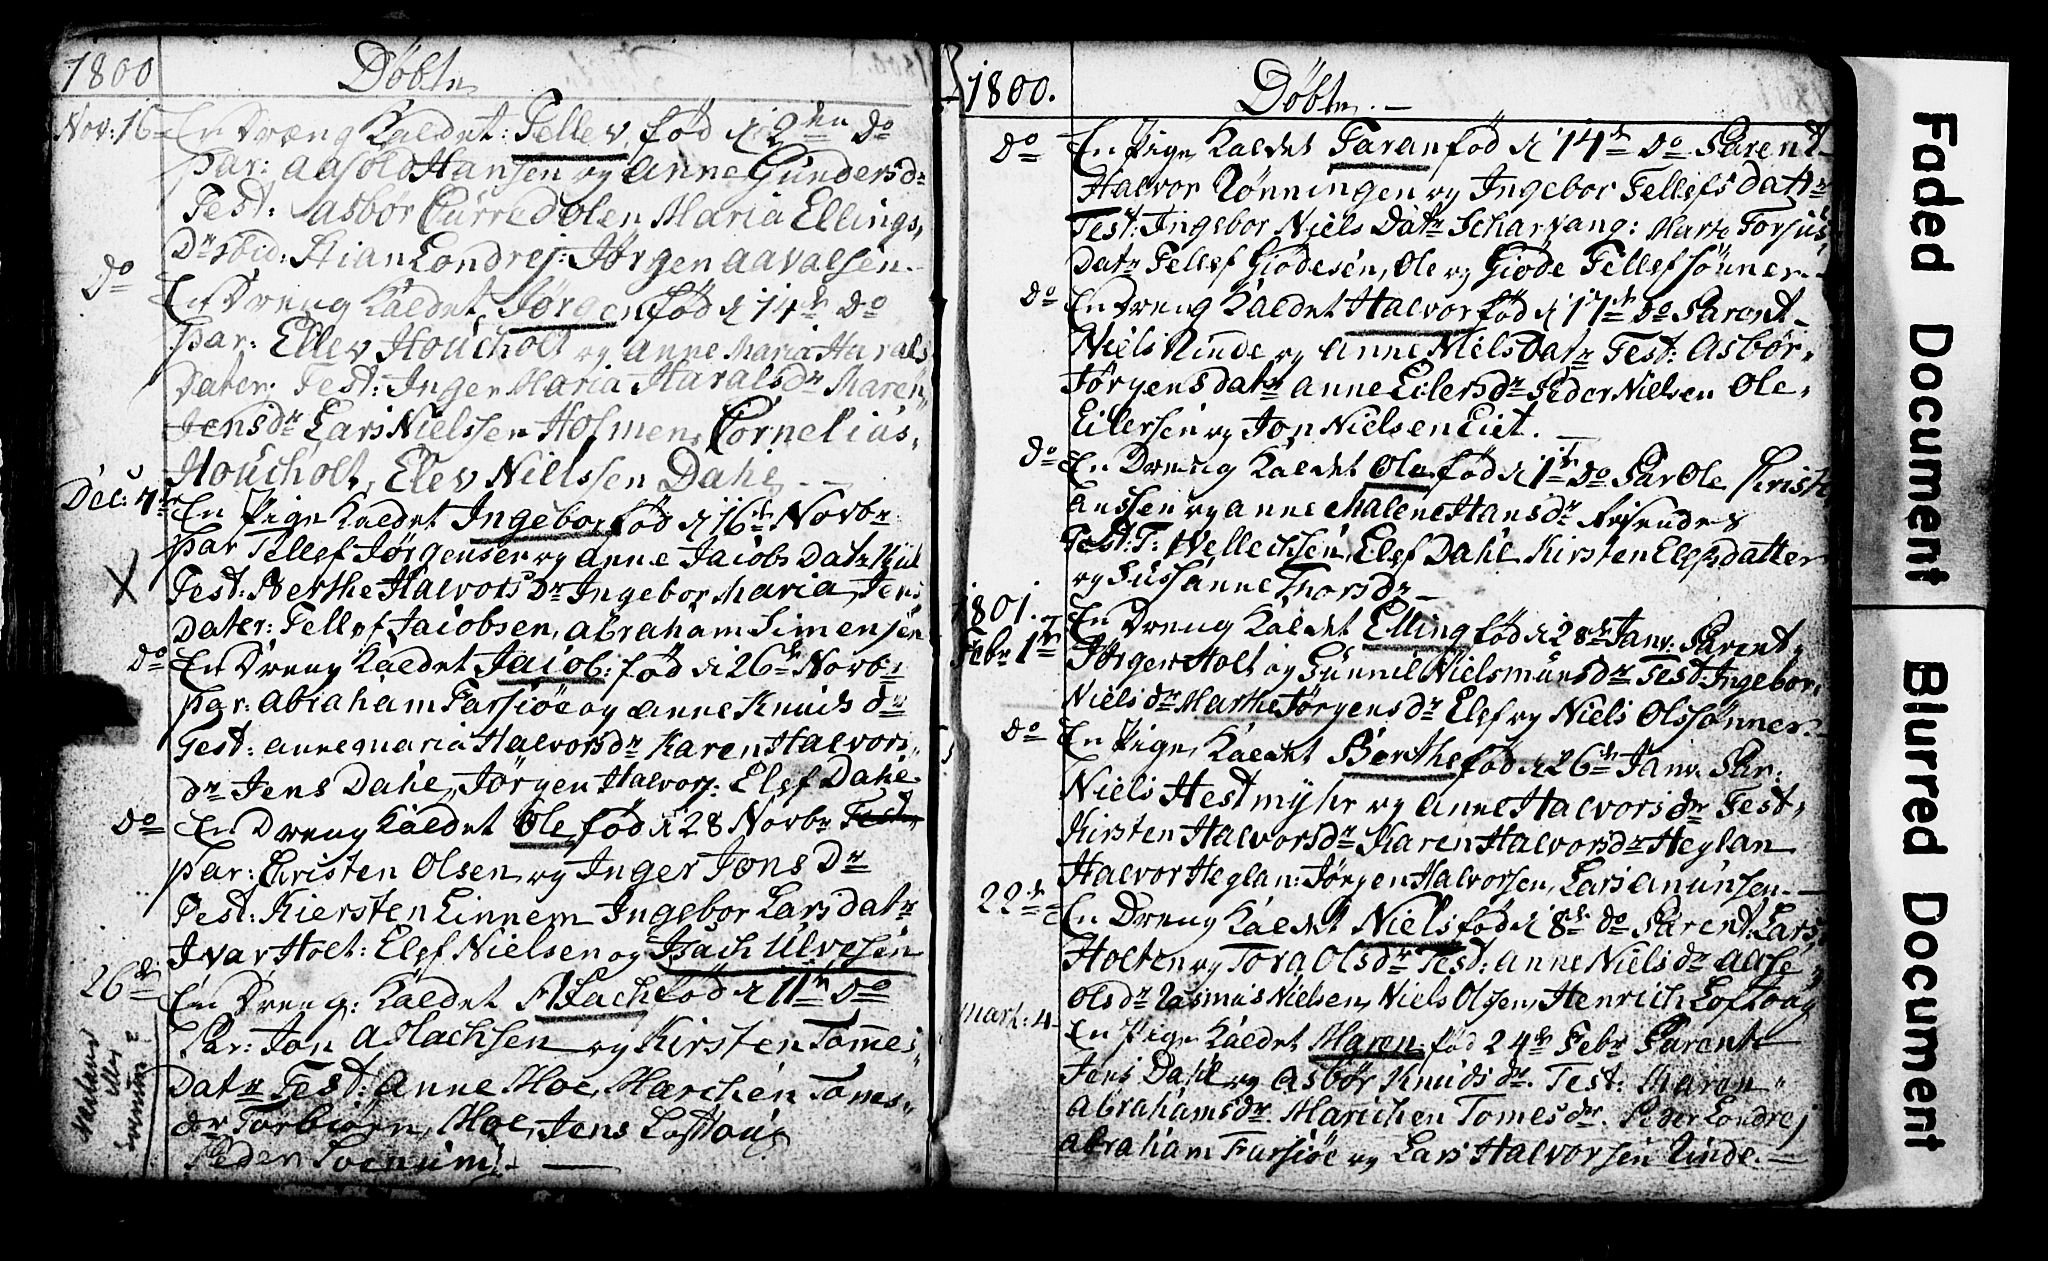 1800 Döbte
Nov: 16 En Dreng Kaldet: Tellev, föd d 2den do
Par: Aasold Hansen og Anne Gundersdr
Test: Asbor Maria Ellings,
Dr ibid: Stian Londrej: Jørgen Aavalsen.
do En Dreng Kaldet Jørgen föd d 14de do
Par: Ellev Houcholt og Anne Maria Harals
Dater. Test: Inger Maria Haralsdr Maren
Jensdr Lars Nielssen Holmen, Cornelias,
Houcholt, Elev Nielssen Dahe. —
Dec: 4de En Pige Kaldet Ingebor föd d 16de Novbr
Par Tellef Jørgensen og Anne Jacobs Datr
X Test: Berthe Halvors Dr Ingebor Maria Jens
Dater: Tellef Jacobsen, Abraham Simensen
do En Dreng Kaldet Jacob: föd d 26de Novbr
Par: Abraham Farsiöe og Anne Knuds dr
Test: Anne Maria Halvorsdr Karen Halvors,
dr Jens Dahe, Jørgen Halvors: Elef Dahe
do En Dreng Kaldet Ole föd d 28 Novbr Test
Par: Christen Olsen og Inger Jens Dr
Test: Kiersten Linnem Ingebor Lars datr
Ivar Holt: Elef Nielsen og Isach Ulvesen
26de En Dreng: Kaldet föd d 11te do
Par: Jon og Kirsten Tommes,
Datr Test: Anne Moe, Marchen Tomes,
dr Torbiörn Moe, Jens Lofthoug
Peder —
eller
1800. Döbte. —
do En Pige Kaldet Taran föd d 14de do Parent
Halvor Rönningen og Ingebor Tellefs Datr
Test: Ingebor Niels Datr Scharvang: Marte Torjus
Datr Tellef Giödesen, Ole og Giöde Tellefsönner. -
do En Dreng Kaldet Halvor föd d 17de do Parent
Niels Rinde og Anne Niels Datr Test: Asbör,
Jørgensdatr Anne Eilersdr Peder Nielsen Ole,
Eilersen og Jon Nielsen Eiet. —
do En Dreng Kaldet Ole föd d 1te do Par Ole Christi
anssen og Anne Malene Hansdr
Test: T: Wellechsen, Elef Dahe Kirsten Elefsdatter
og Susanne Thorsdr —
1801.
Febr 1te En Dreng Kaldet Elling föd d 28de Janv. Parent,
Jørgen Holt og Gunnil Nielsmunsdr Test: Ingebor,
Nielsdr Marthe Jørgensdr Elef og Niels Olssønner. -
do En Pige Kaldet Berthe föd d 26de Janv. Par:
Niels Hestmyhr og Anne Halvorsdr Test,
Kirsten Halvorsdr Karen Halvorsdr Heglan
Halvor Heglan: Jørgen Halvorsen, Lars Anunsen. —
22de En Dreng Kaldet Niels föd d 8de do Parent: Lars,
Holten og Tora Olsdr Test: Anne Nielsdr Aase
Olsdr Rasmus Nielsen, Niels Olsen, Henrich Loftoug
Mart: 4 En Pige Kaldet Maren. föd 24de Febr Parent
Jens Dahe og Asbör Knudsdr. Test: Maren
Abrahamsdr. Marichen Tomesdr. Peder Londrej
Abraham Farsiöe og Lars Halvorsen Rinde. —
Faded Document Blurred Document